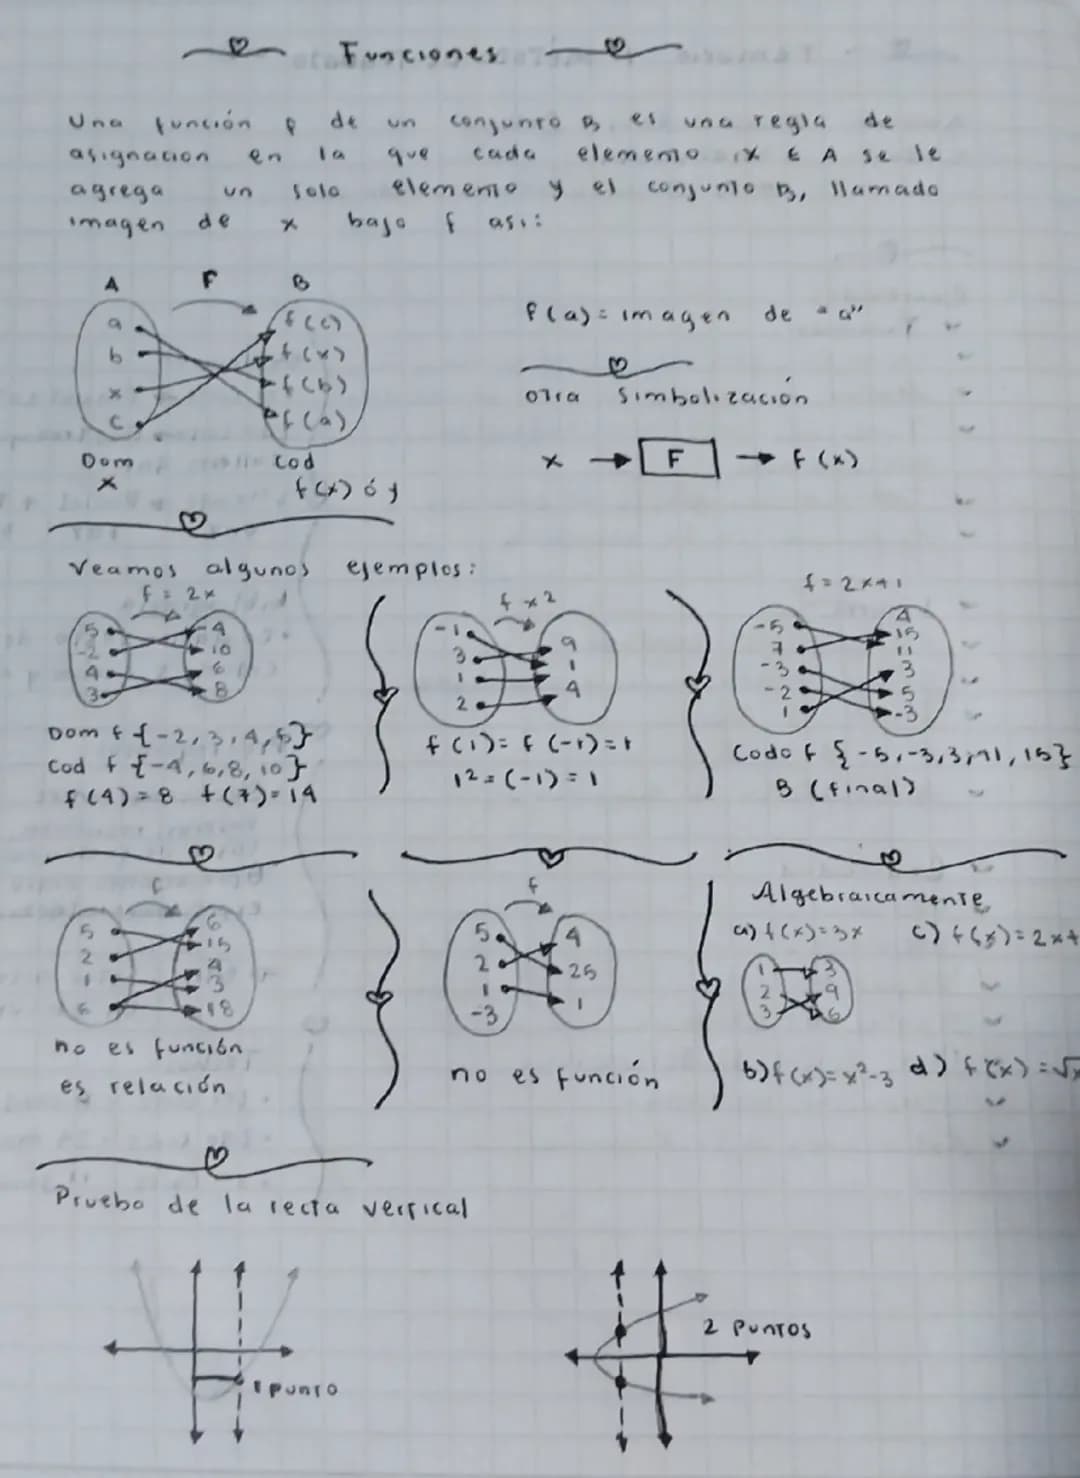 Funciones
Una función f de un conjunto B es una regla de
asignacion en la que cada elemento x ∈ A se le
agrega un solo elemento y el conjunto B, llamado
imagen de x bajo f asi:
A F B
a f(c)
b f(x)
x f(b)
c f(a)
Dom Cod
x f(x) ó y
f(a) = imagen de "a"
otra Simbolización
x → F → f(x)
Veamos algunos ejemplos:
f = 2x
5 -4
-2 10
4 6
3 8
Dom f {-2, 3, 4, 5}
Cod f {-4, 6, 8, 10}
f(4) = 8 f(7) = 14
f x2
-1 9
3 1
1 4
2
f(1) = f(-1) = 1
1² = (-1) = 1
f = 2x+1
-5 4
7 15
-3 11
-2 3
1 5
-3
Codo f {-5, -3, 3, 11, 15}
B (final)
f
5 6
2 15
1 4
6 3
18
no es función
es relación
f
5 4
2 25
1 1
-3
no es función
Algebraicamente
a) f(x) = 3x c) f(x) = 2x+
1 3
2 9
3 6
b) f(x) = x²-3 d) f(x) = √x
Pruebo de la recta vertical
1 punto
2 Puntos